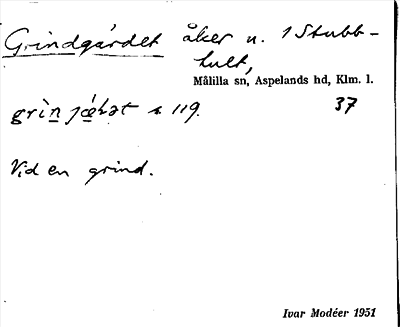 Grindgärdet åker n. 1 Stubb-
hult,
Målilla sn, Aspelands hd, Klm. l.
grìn jǽḷət s 119. 37
Vid en grind.
Ivar Modéer 1951